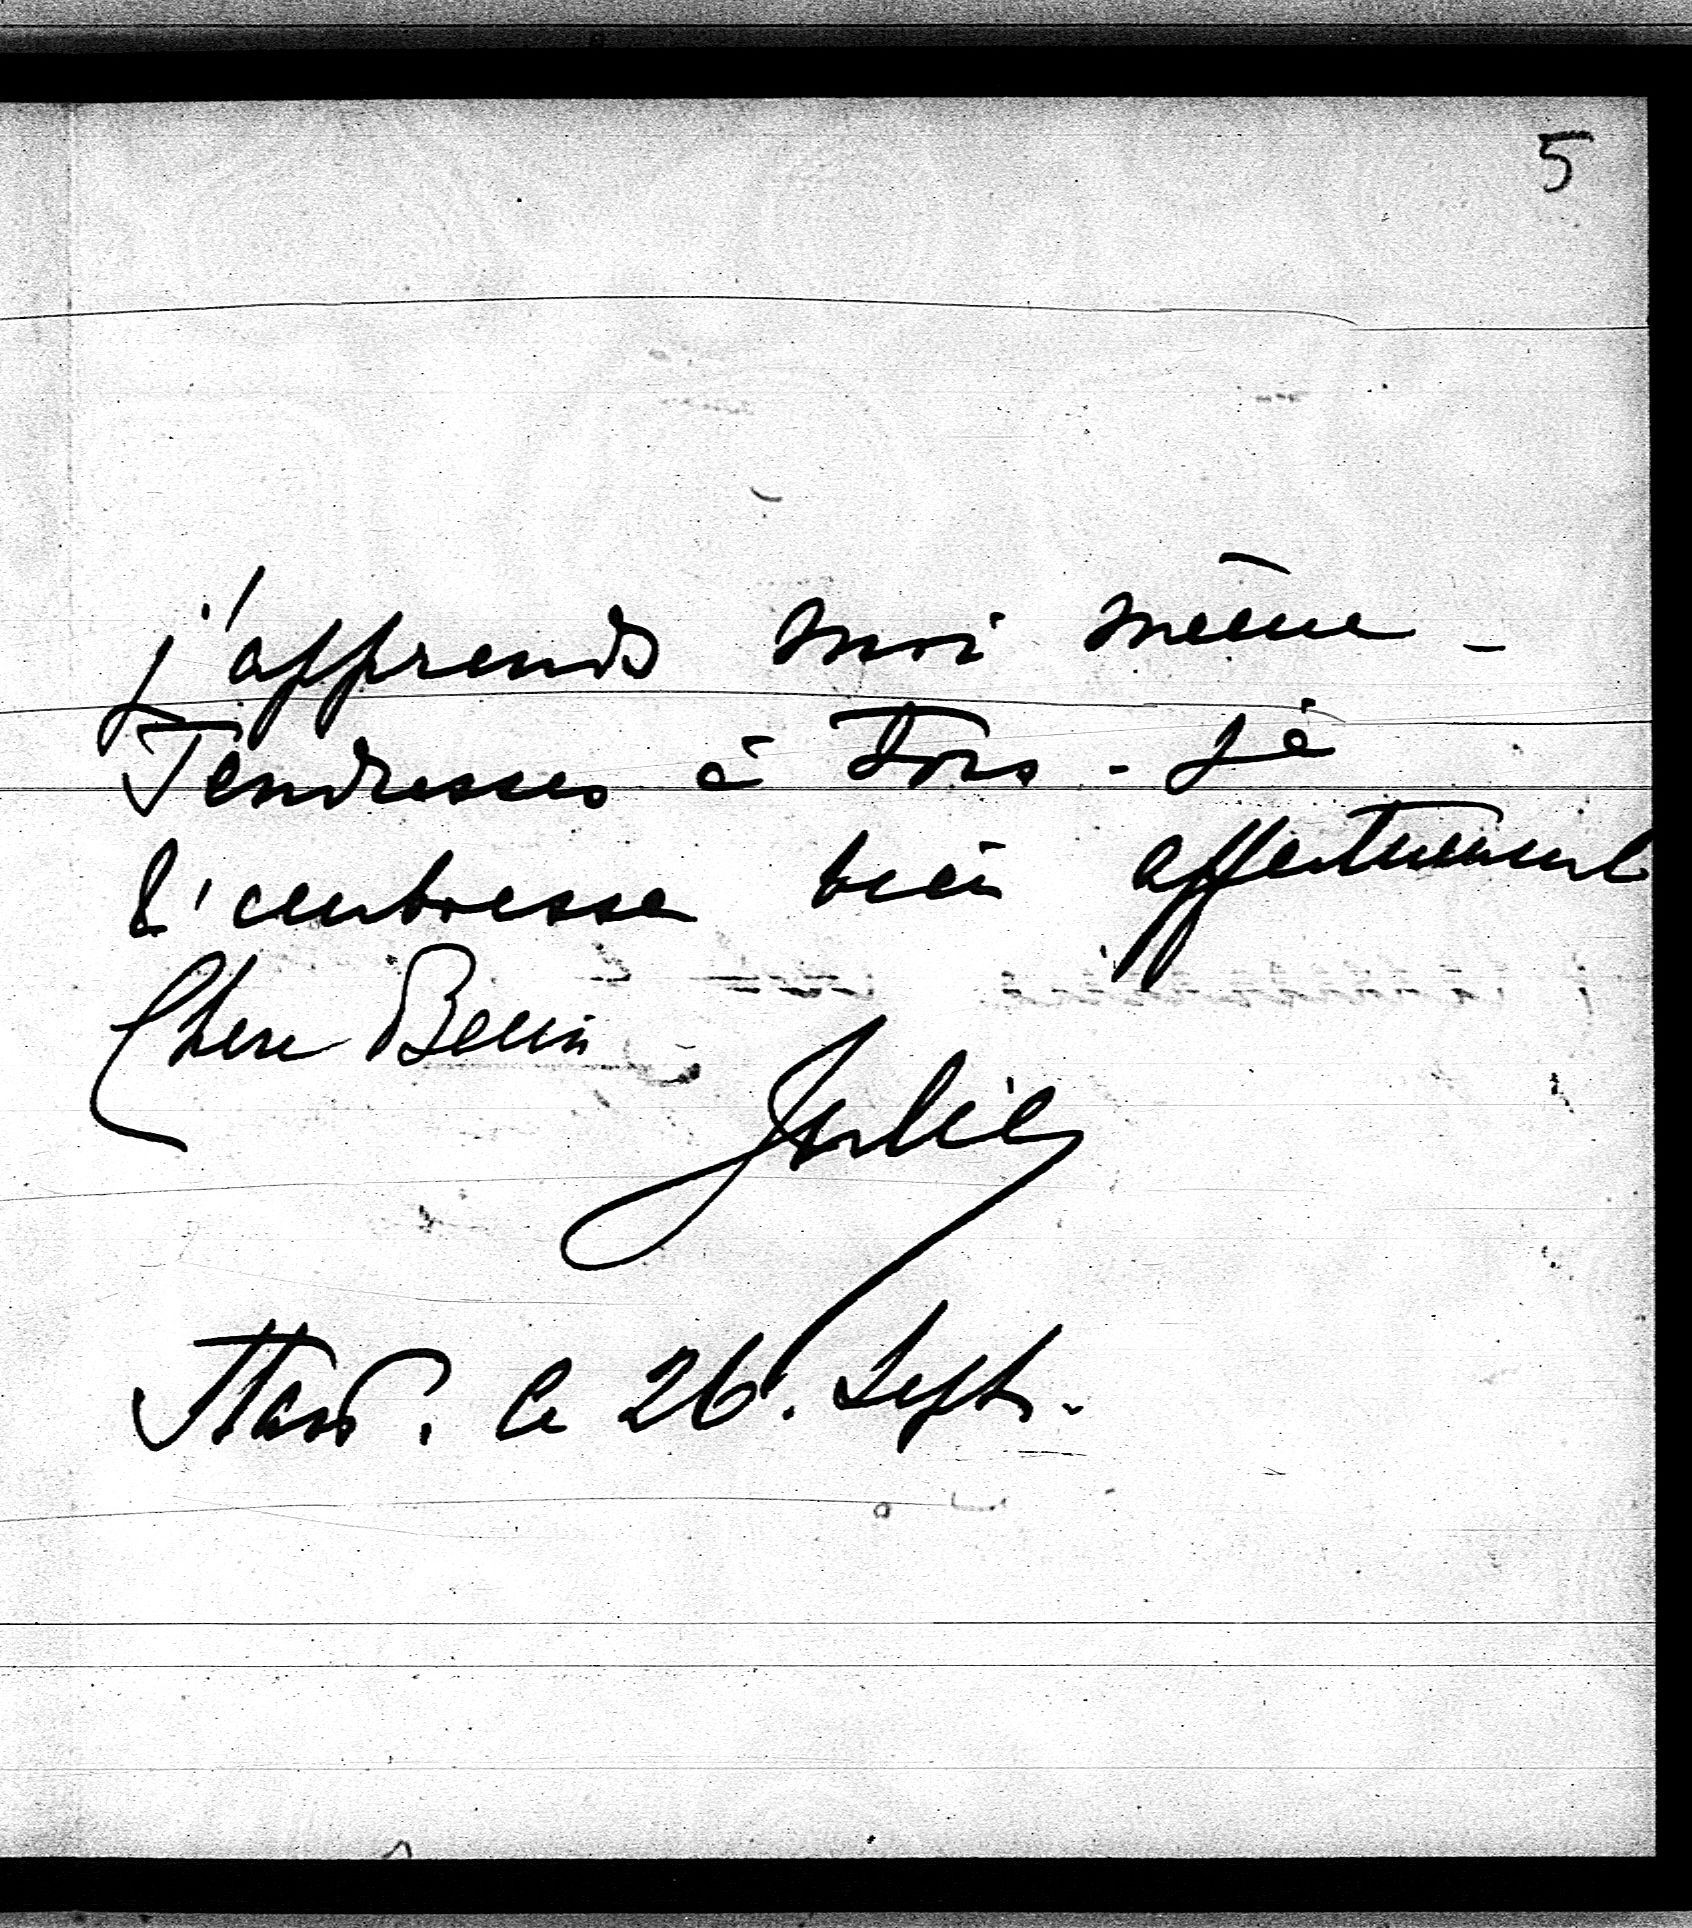 5
j'apprends moi même -
Tendresses à Tous - je
t'embrasse bien affectueusement
Chere
Julie
le 26. Sept.